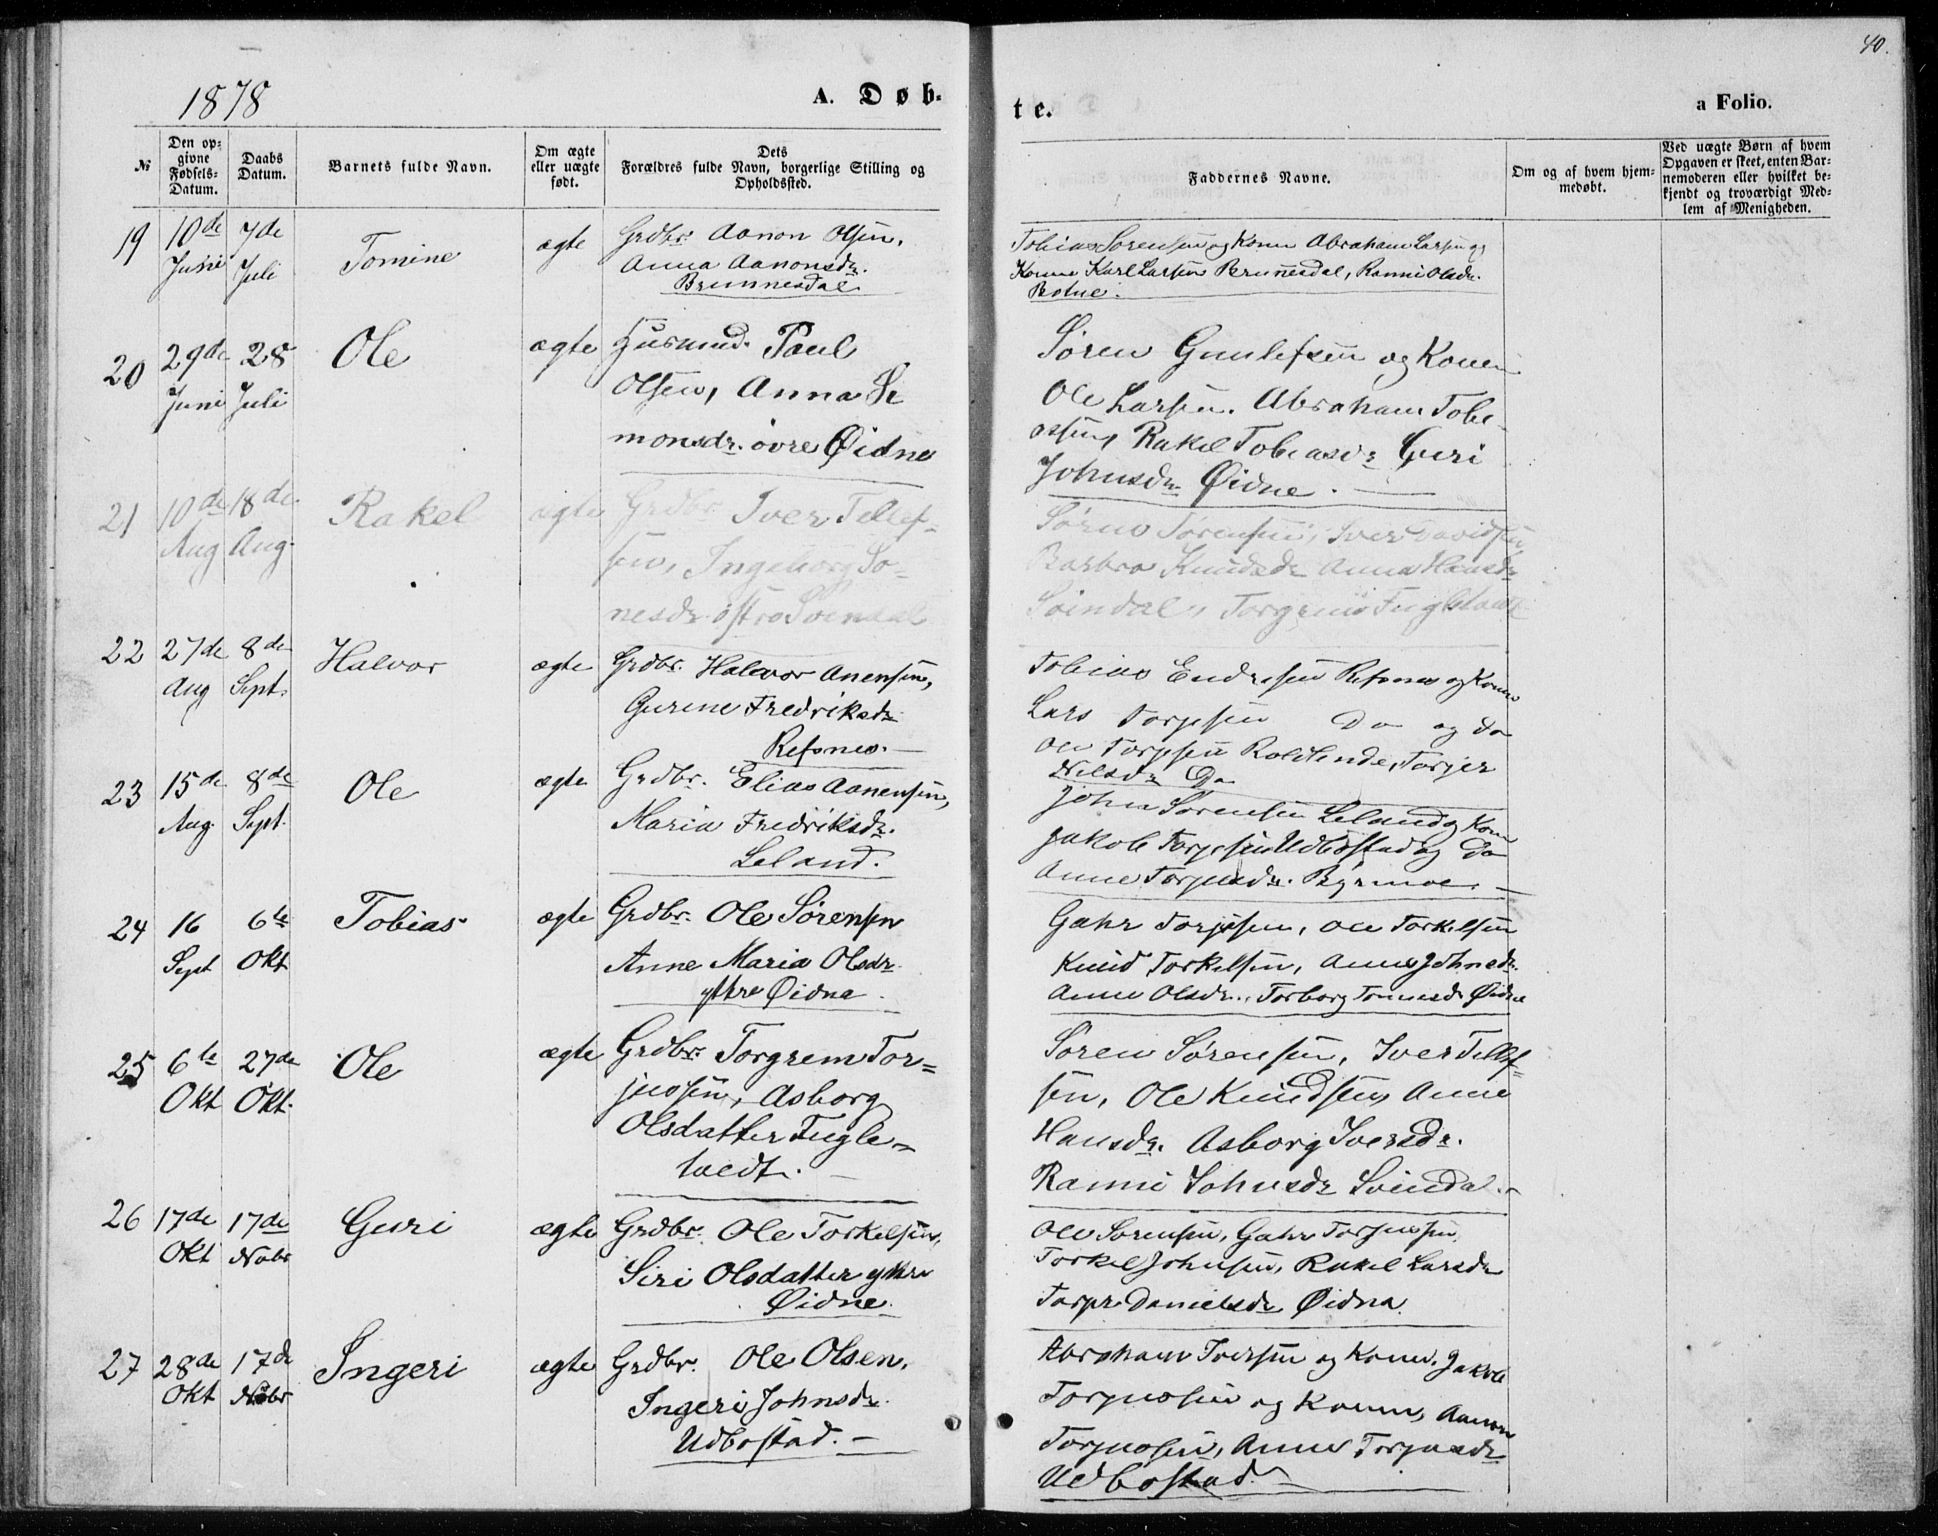 1878
A. Døb-
№
Den op-
givne
Fødsels-
Datum.
Daabs
Datum.
Barnets fulde Navn.
Om ægte
eller uægte
født.
Dets
Forældres fulde Navn, borgerlige Stilling og
Opholdssted.
19 10de 7de Tomine ægte Grdbr. Aanon Olsen,
Juni Juli Anna Aanonsdr.
Brunnesdal
20 29de 28 Ole ægte Husmd. Paul
Juni Juli Olsen, Anna Si
monsdr. øvre Øidne
21 10de 18de Rakel ægte Grdbr. Iver Tellef-
Aug Aug. sen, Ingeborg So-
nesdr. østre Svindal
22 27de 8de Halvor ægte Grdbr. Halvor Anensen,
Aug Sept. Gurine Fredriksdr.
Refsnes.
23 15de 8de Ole ægte Grdbr. Elias Aanensen,
Aug. Sept. Maria Fredriksdr.
Leland.
24 16 6te Tobias ægte Grdbr. Ole Sørensen
Sept Okt Anne Maria Olsdr.
ytre Øidna.
25 6te 27de Ole ægte Grdbr. Torgrem Tor-
Okt Okt. jussen, Asborg
Olsdatter Fugle-
tvedt.
26 17de 17de Guri ægte Grdbr. Ole Torkelsen,
Okt Nobr Siri Olsdatter ytre
Øidne.
27 28de 17de Ingeri ægte Grdbr. Ole Olsen,
Okt Nobr Ingeri Johnsdr.
Udbøstad.
40.
te.
a Folio.
Faddernes Navne.
Om og af hvem hjem-
medøbt.
Ved uægte Børn af hvem
Opgaven er skeet, enten Bar-
nemoderen eller hvilket be-
kjendt og troværdigt Med-
lem af Menigheden.
Tobias Sorensen og Kone Abraham Larsen og
Kone Karl Larsen Brunesdal, Ranni Olsdr.
Søren Gunlefsen og Kone
Ole Larsen. Abraham Tobi
assen, Rakel Tobiasdr Guri
Johnsdr Øidne.
Sørno Sørensen, Iver Davidsen
Barbro Knudsdr Anna Hansdr
Svindal, Torgrim Fugletvedt
Tobias Endresen Refsnes og Kone
Lars Torjesen Do og Do
Ole Torjesen Torjer
Nilsdr Do
John Sørensen Leland og Kone
Jakob Torjesen Udbøstad og Do
Anne Torjusdr. Byrmoe.
Gahr Torjesen, Ole Torkelsen
Knud Torkelsen, Anne Johnsdr.
Anne Olsdr., Torborg Tomesdr Øidne
Søren Sørensen, Iver Tellef-
sen, Ole Knudsen, Anne
Hansdr. Asborg Iversdr.
Ranni Johnsdr Svindal.
Ole Sorensen, Gahr Torjussen,
Torkel Johnsen, Rakel Larsdr
Danielsdr Øidna.
Abraham Iversen og Kone, Jakob
Torjussen og Kone, Aanon
Torjussen, Anne Torjusdr
Udbøstad.